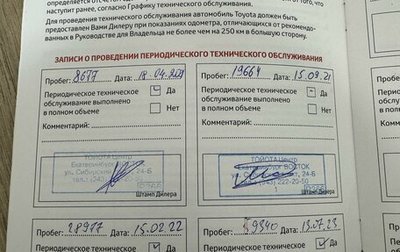 определяется
наступит ранее, согласно Графику технического обслуживания.
Для проведения технического обслуживания автомобиль Toyota должен быть
предоставлен Вами Дилеру при показаниях одометра, отличающихся от рекомендо-
ванных в Руководстве для Владельца не более чем на 250 км в большую сторону.
ЗАПИСИ О ПРОВЕДЕНИИ ПЕРИОДИЧЕСКОГО ТЕХНИЧЕСКОГО ОБСЛУЖИВАНИЯ
Пробег: 8677 Дата: 18.04.201
Периодическое техническое
обслуживание выполнено
в полном объеме
Да
Нет
Комментарий:
Екатеринбург
ул. Сибирский 24-Б
Штамп Дилера
Пробег: 19664 Дата: 15.09.21
Периодическое техническое
обслуживание выполнено
в полном объеме
Да
Нет
Комментарий:
ТОЙОТА Центр
Екатеринбург ВОСТОК
24-Б
(343) 222-20-50
Штамп Дилера
Пробег: 28977 Дата: 15.02.22
Периодическое техническое
Да
Пробег: 39340 Дата: 13.07.23
Периодическое техническое
Да